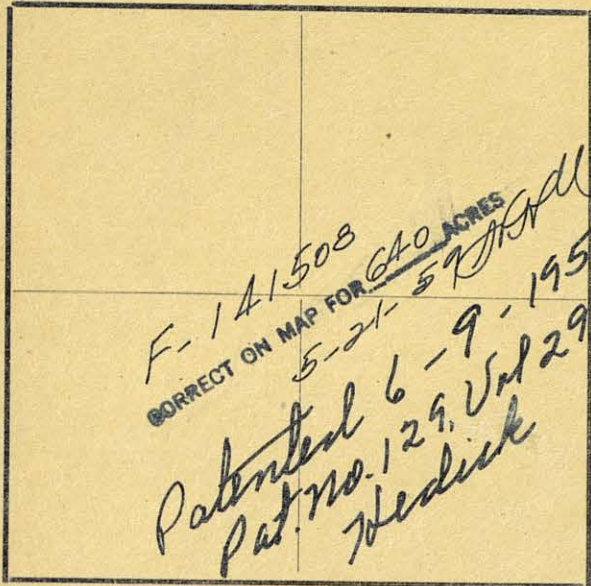 F- 141508
CORRECT ON MAP FOR 640 ACRES
5-21-59
Patented 6-9-195
Pat. No. 129, Vol 29
Hedick